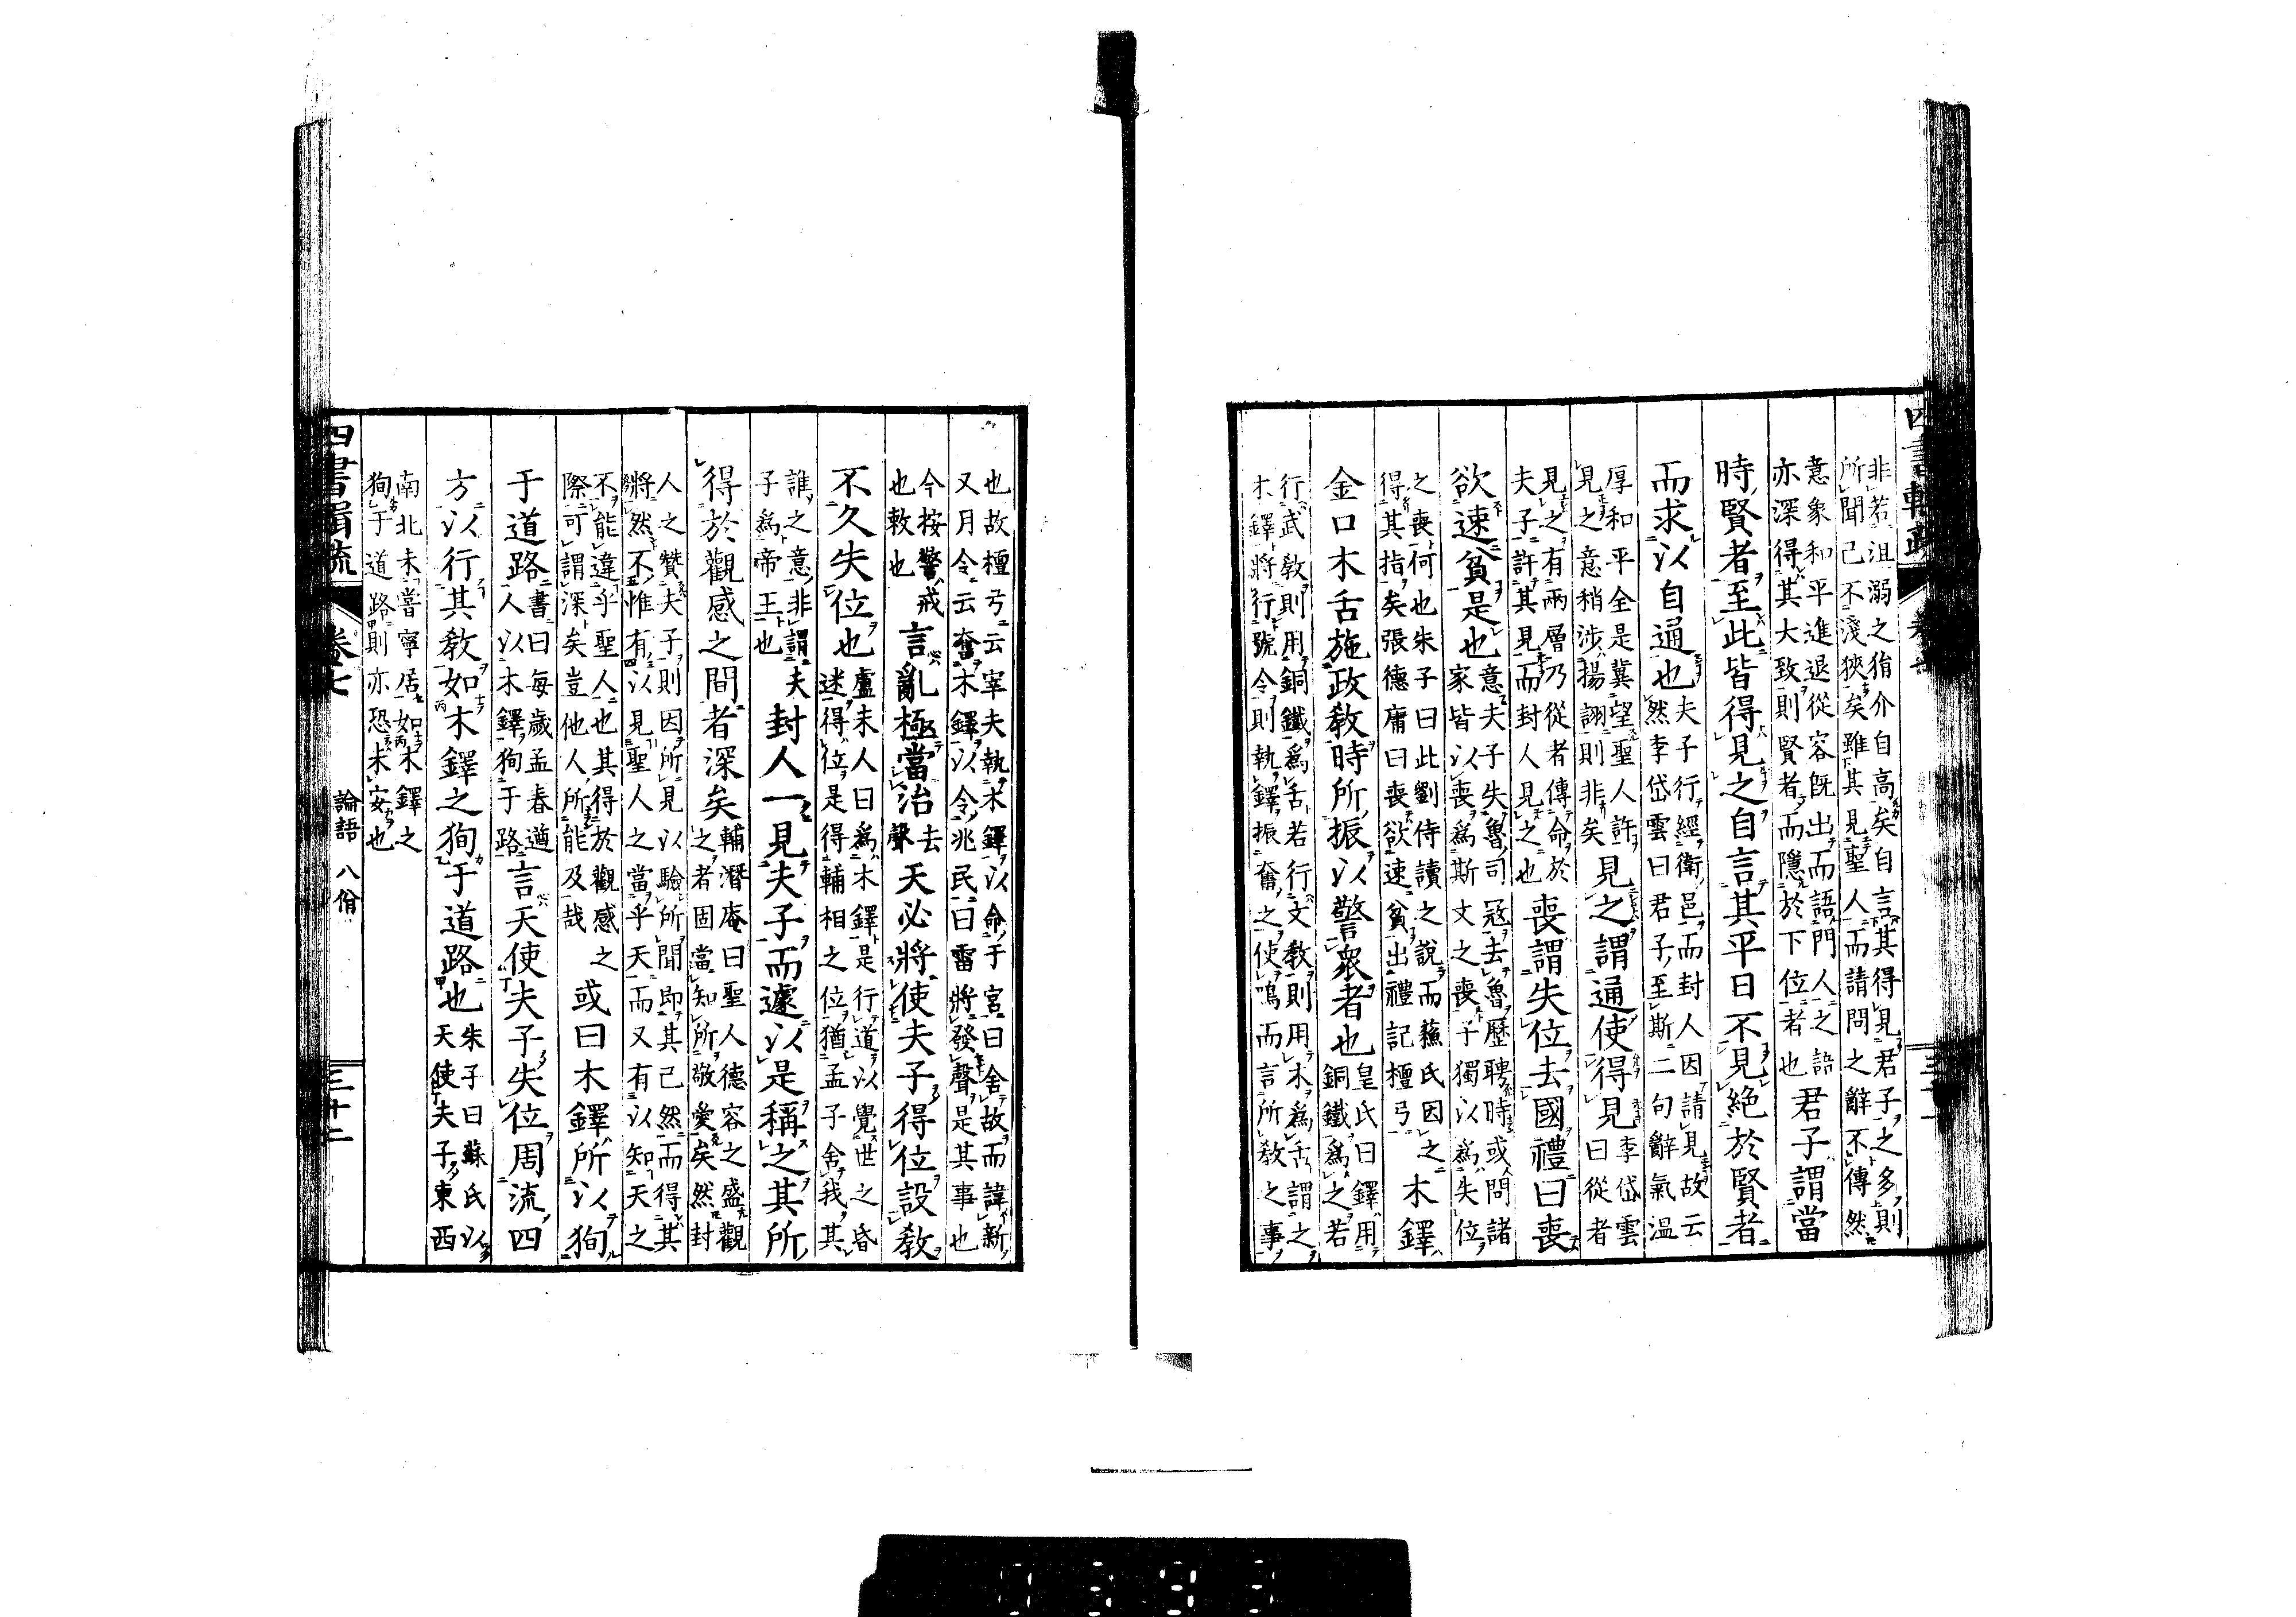 非若沮溺之狷介自高矣自言其得見君子之多則
所聞己不淺狹矣雖其見聖人而請問之辭不傳然
意象和平進退從容旣出而語門人之語
亦深得其大致則賢者而隱於下位者也
君子謂當
時賢者至此皆得見之自言其平日不見絶於賢者
而求以自通也
夫子行經衛邑而封人因請見故云
然李岱雲曰君子至斯二句辭氣溫
厚和平全是冀望聖人許
見之意稍涉揚詡則非矣
見之謂通使得見
李岱雲
曰從者
見之有兩層乃從者傳命於
夫子許其見而封人見之也
喪謂失位去國禮曰喪
欲速貧是也
意夫子失魯司冦去魯歷聘時或問諸
家皆以喪爲斯文之喪子獨以爲失位
之喪何也朱子曰此劉侍讀之說而蘇氏因之
得其指矣張德庸曰喪欲速貧出禮記檀弓
木鐸
金口木舌施政教時所振以警衆者也
皇氏曰鐸用
銅鐵爲之若
行武教則用銅鐵爲舌若行文教則用木爲舌謂之
木鐸將行號令則執鐸振奮之使鳴而言所教之事
也故檀弓云宰夫執木鐸以命于宮曰舍故而諱新
又月令云奮木鐸以令兆民曰雷將發聲是其事也
今按警戒
也敕也
言亂極當治
去
聲
天必將使夫子得位設教
不久失位也
盧未人曰爲木鐸是行道以覺世之昏
迷得位是得輔相之位猶孟子舍我其
誰之意非謂夫
子爲帝王也
封人一見夫子而遽以是稱之其所
得於觀感之間者深矣
輔潛庵曰聖人德容之盛觀
之者固當知所敬愛矣然封
人之贊夫子則因所見以驗所聞即其已然而得其
將然不惟有以見聖人之當乎天而又有以知天之
不能違乎聖人也其得於觀感之
際可謂深矣豈他人所能及哉
或曰木鐸所以狥
于道路
書曰每歲孟春遒
人以木鐸狥于路
言天使夫子失位周流四
方以行其教如木鐸之狥于道路也
朱子曰蘇氏以
天使夫子東西
南北未嘗寧居如木鐸之
狥于道路則亦恐未安也
四書輯疏
卷七
論語 八佾
三十二